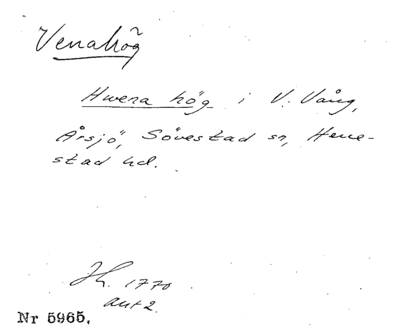 Venahög
Hwena hög i V. Vång,
Årsjö, Sövestad sn, Herre-
stad hd.
1770
akt 2.
Nr 5965.